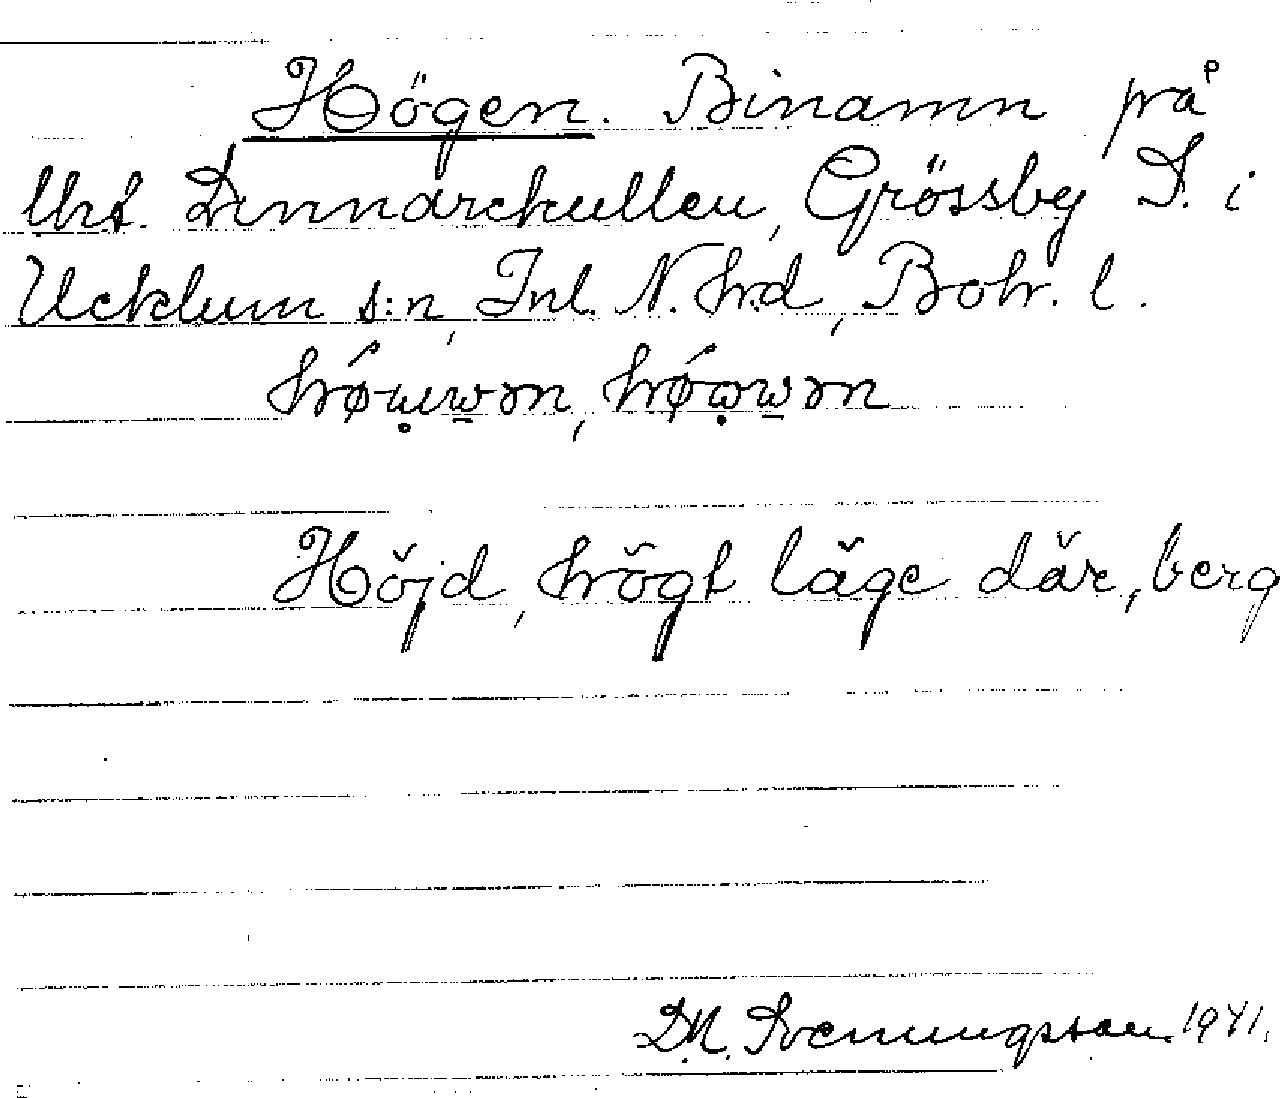 Högen. Binamn på
lht. Linnarekullen, Grössby S. i
Ucklum s:n, Inl. N. hrd, Boh. l.
Höjd, högt läge där, berg
D.N. Svenungsson 1941.